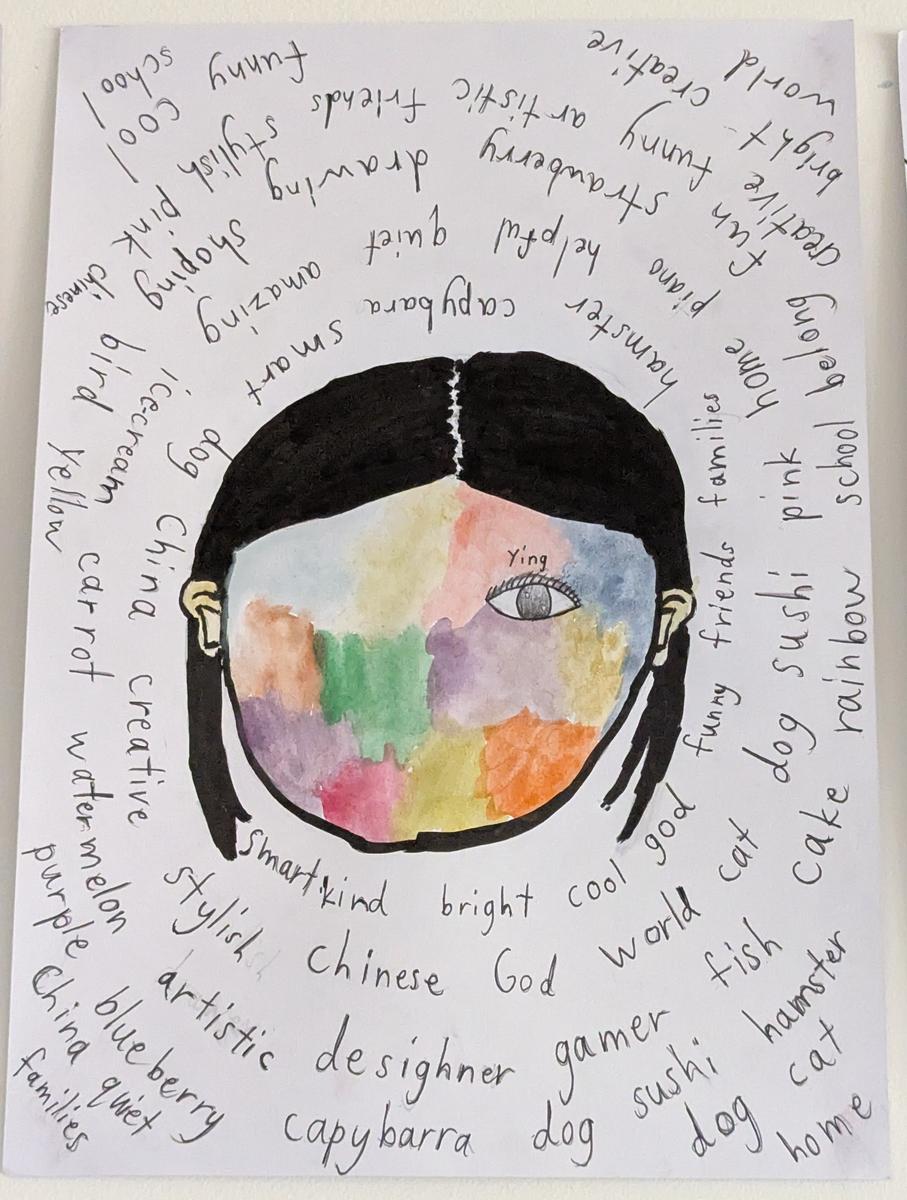 Ying
smart kind bright cool god
funny friends families
hamster capybara smart dog
China creative
stylish Chinese God world cat
dog sushi pink home
piano helpful quiet amazing
icecream
carrot watermelon
artistic desighner gamer fish
cake rainbow school belong
fun strawberry drawing shoping
bird yellow
purple blueberry
capybarra dog sushi hamster
creative funny artistic friends stylish pink chinese
China quiet
dog cat
bright creative funny cool
families
home
world school